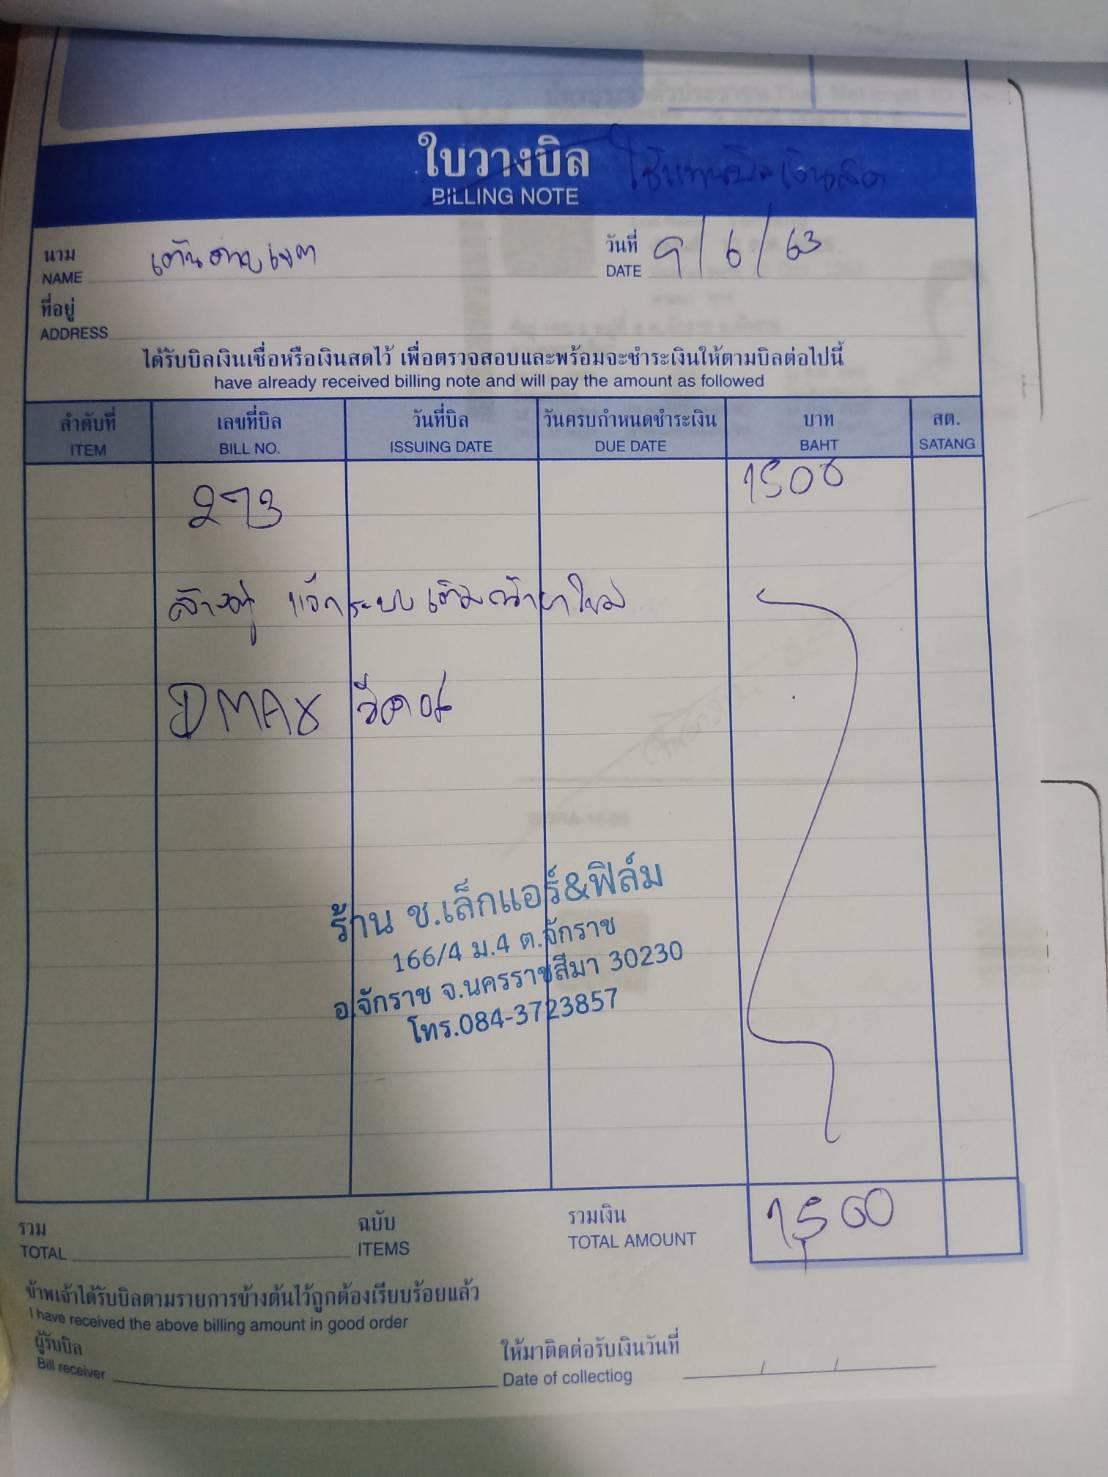 ใบวางบิล ใช้แทนบิลเงินสด
BILLING NOTE
นาม
NAME
วันที่ 9/6/63
DATE
ที่อยู่
ADDRESS
ได้รับบิลเงินเชื่อหรือเงินสดไว้ เพื่อตรวจสอบและพร้อมจะชำระเงินให้ตามบิลต่อไปนี้
have already received billing note and will pay the amount as followed
ลำดับที่ เลขที่บิล วันที่บิล วันครบกำหนดชำระเงิน บาท สต.
ITEM BILL NO. ISSUING DATE DUE DATE BAHT SATANG
273 1500
ล้างตู้ แว็กระบบ เติมน้ำยาใหม่
DMAX
ร้าน ช.เล็กแอร์&ฟิล์ม
166/4 ม.4 ต.จักราช
อ.จักราช จ.นครราชสีมา 30230
โทร.084-3723857
รวม ฉบับ รวมเงิน 1,500
TOTAL ITEMS TOTAL AMOUNT
ข้าพเจ้าได้รับบิลตามรายการข้างต้นไว้ถูกต้องเรียบร้อยแล้ว
I have received the above billing amount in good order
ผู้รับบิล ให้มาติดต่อรับเงินวันที่
Bill receiver Date of collectiog